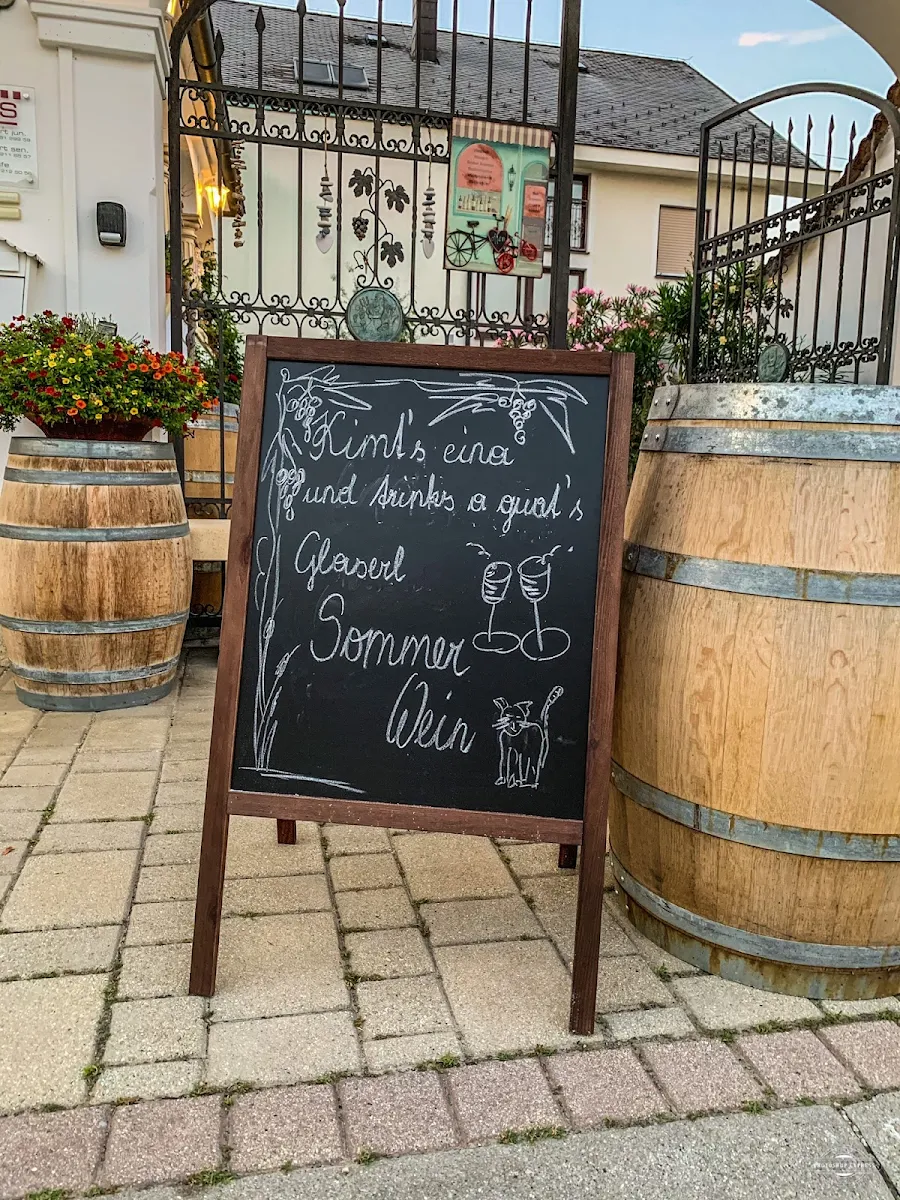 S
Kimt's eina
und trinks a guat's
Glaserl
Sommer
Wein